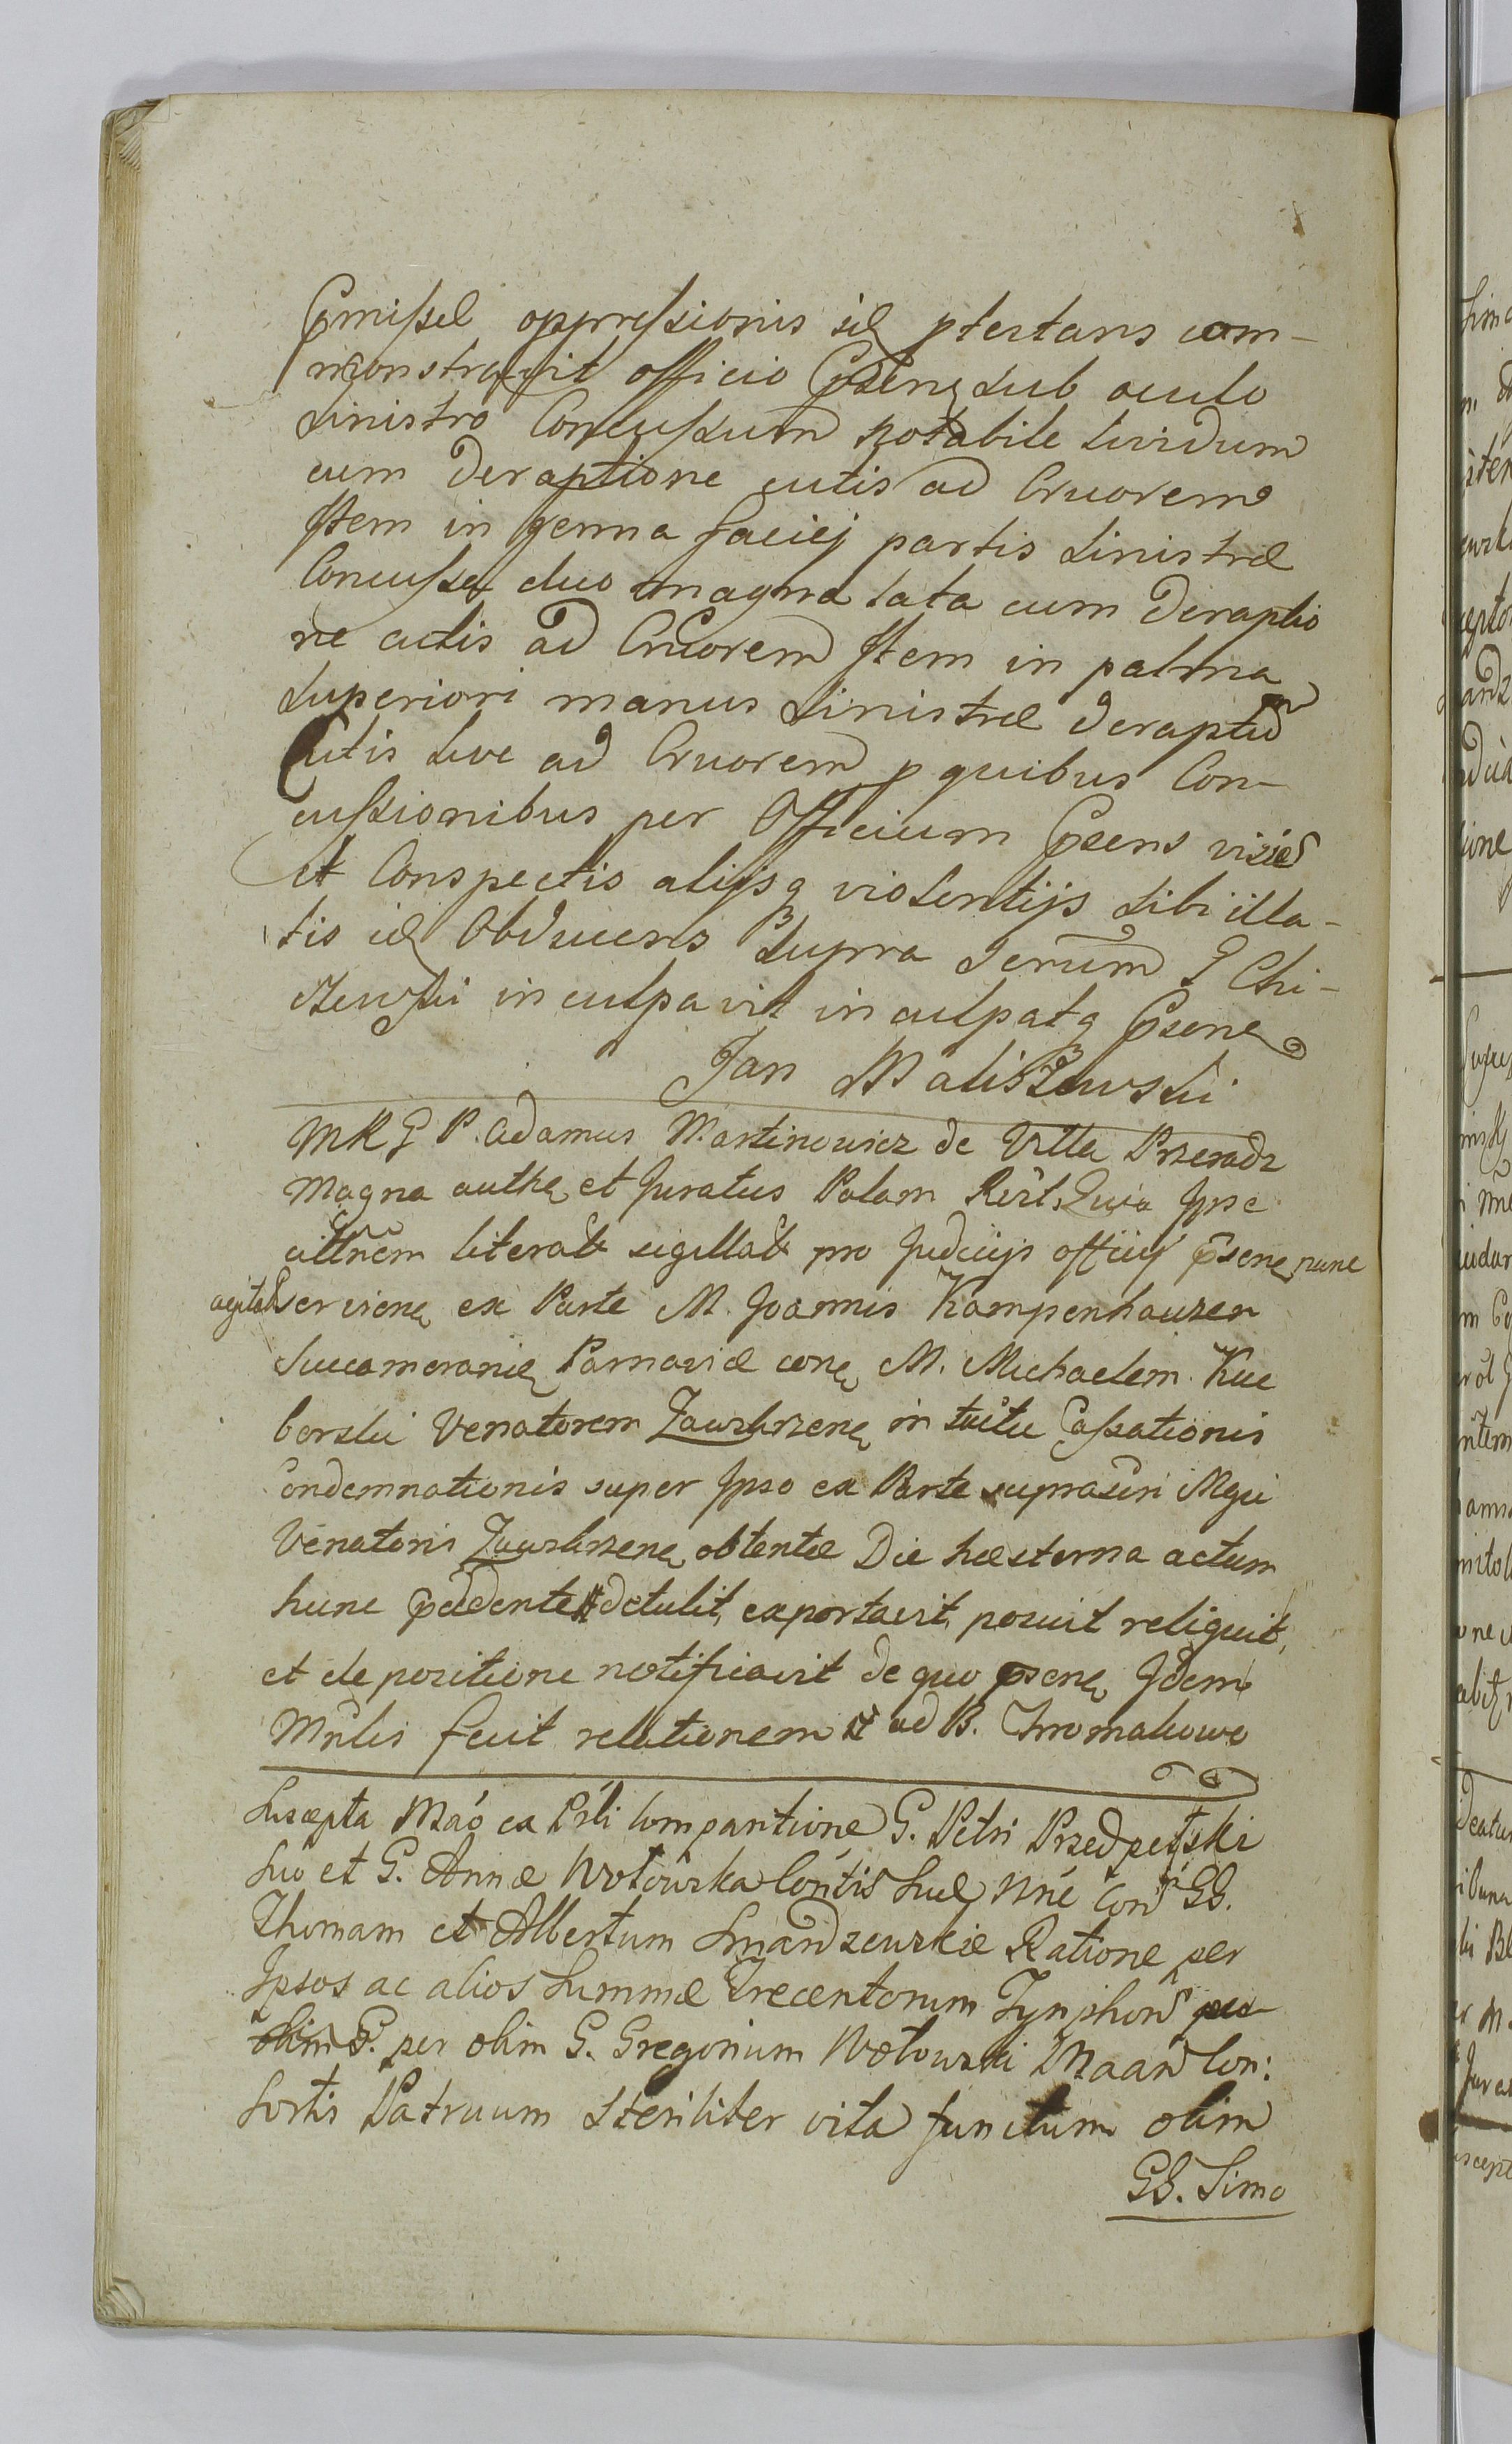 Pmissae oppressionis suae ptestans com-
monstravit officio Psenq sub oculo
sinistro Concussum notabile lividum
cum deraptione cutis ad Cruorem
Item in genna faciej partis sinistrae
Concussa duo magna lata cum deraptio
ne cutis ad Cruorem Item in palma
superiori manus sinistrae deraptio
Cutis sive ad Cruorem p quibus Con-
cussionibus per Officium Psens visis
et Conspectis alijsq violentijs sibi illa-
tis Obducens supra G Chi-
szewski inculpavit inculpatq Psene
Jan Maliszewski
MRG P. Adamus Martinowicz de Villa Przeradz
Magna authe et Juratus Palam Recit. Quia Ipse
cittnem literate sigillate pro Judicijs officij Psene nunc
agitat serviene ex Parte M. Joannis Kampenhauzen
Succamerarie Parnaviae cone M. Michaelem Kuc
borski Venatorem Zawskrzene in tuitu Cassationis
Condemnationis super Ipso ex Parte suprascri Mgci
Venatoris Zawskrzene obtentae Die haesterna actum
hunc pcedente detulit, exportavit, posuit reliquit,
et de positione notificavit de quo psene Idem
Mnlis fecit relationem ad B. Chromakowo
Suscepta Mao ex Psli Compartione G. Petri Przedpetski
suo et G. Annae Wotowska Contis suae nne Con GG.
Thomam et Albertum Smardzewskie Ratione per
Ipsos ac alios summae Trecentorum Tynphon per
olim G. per olim G. Gregorium Wotowski Maan Con:
sortis Patruum steriliter vita functum olim
GG. Simo